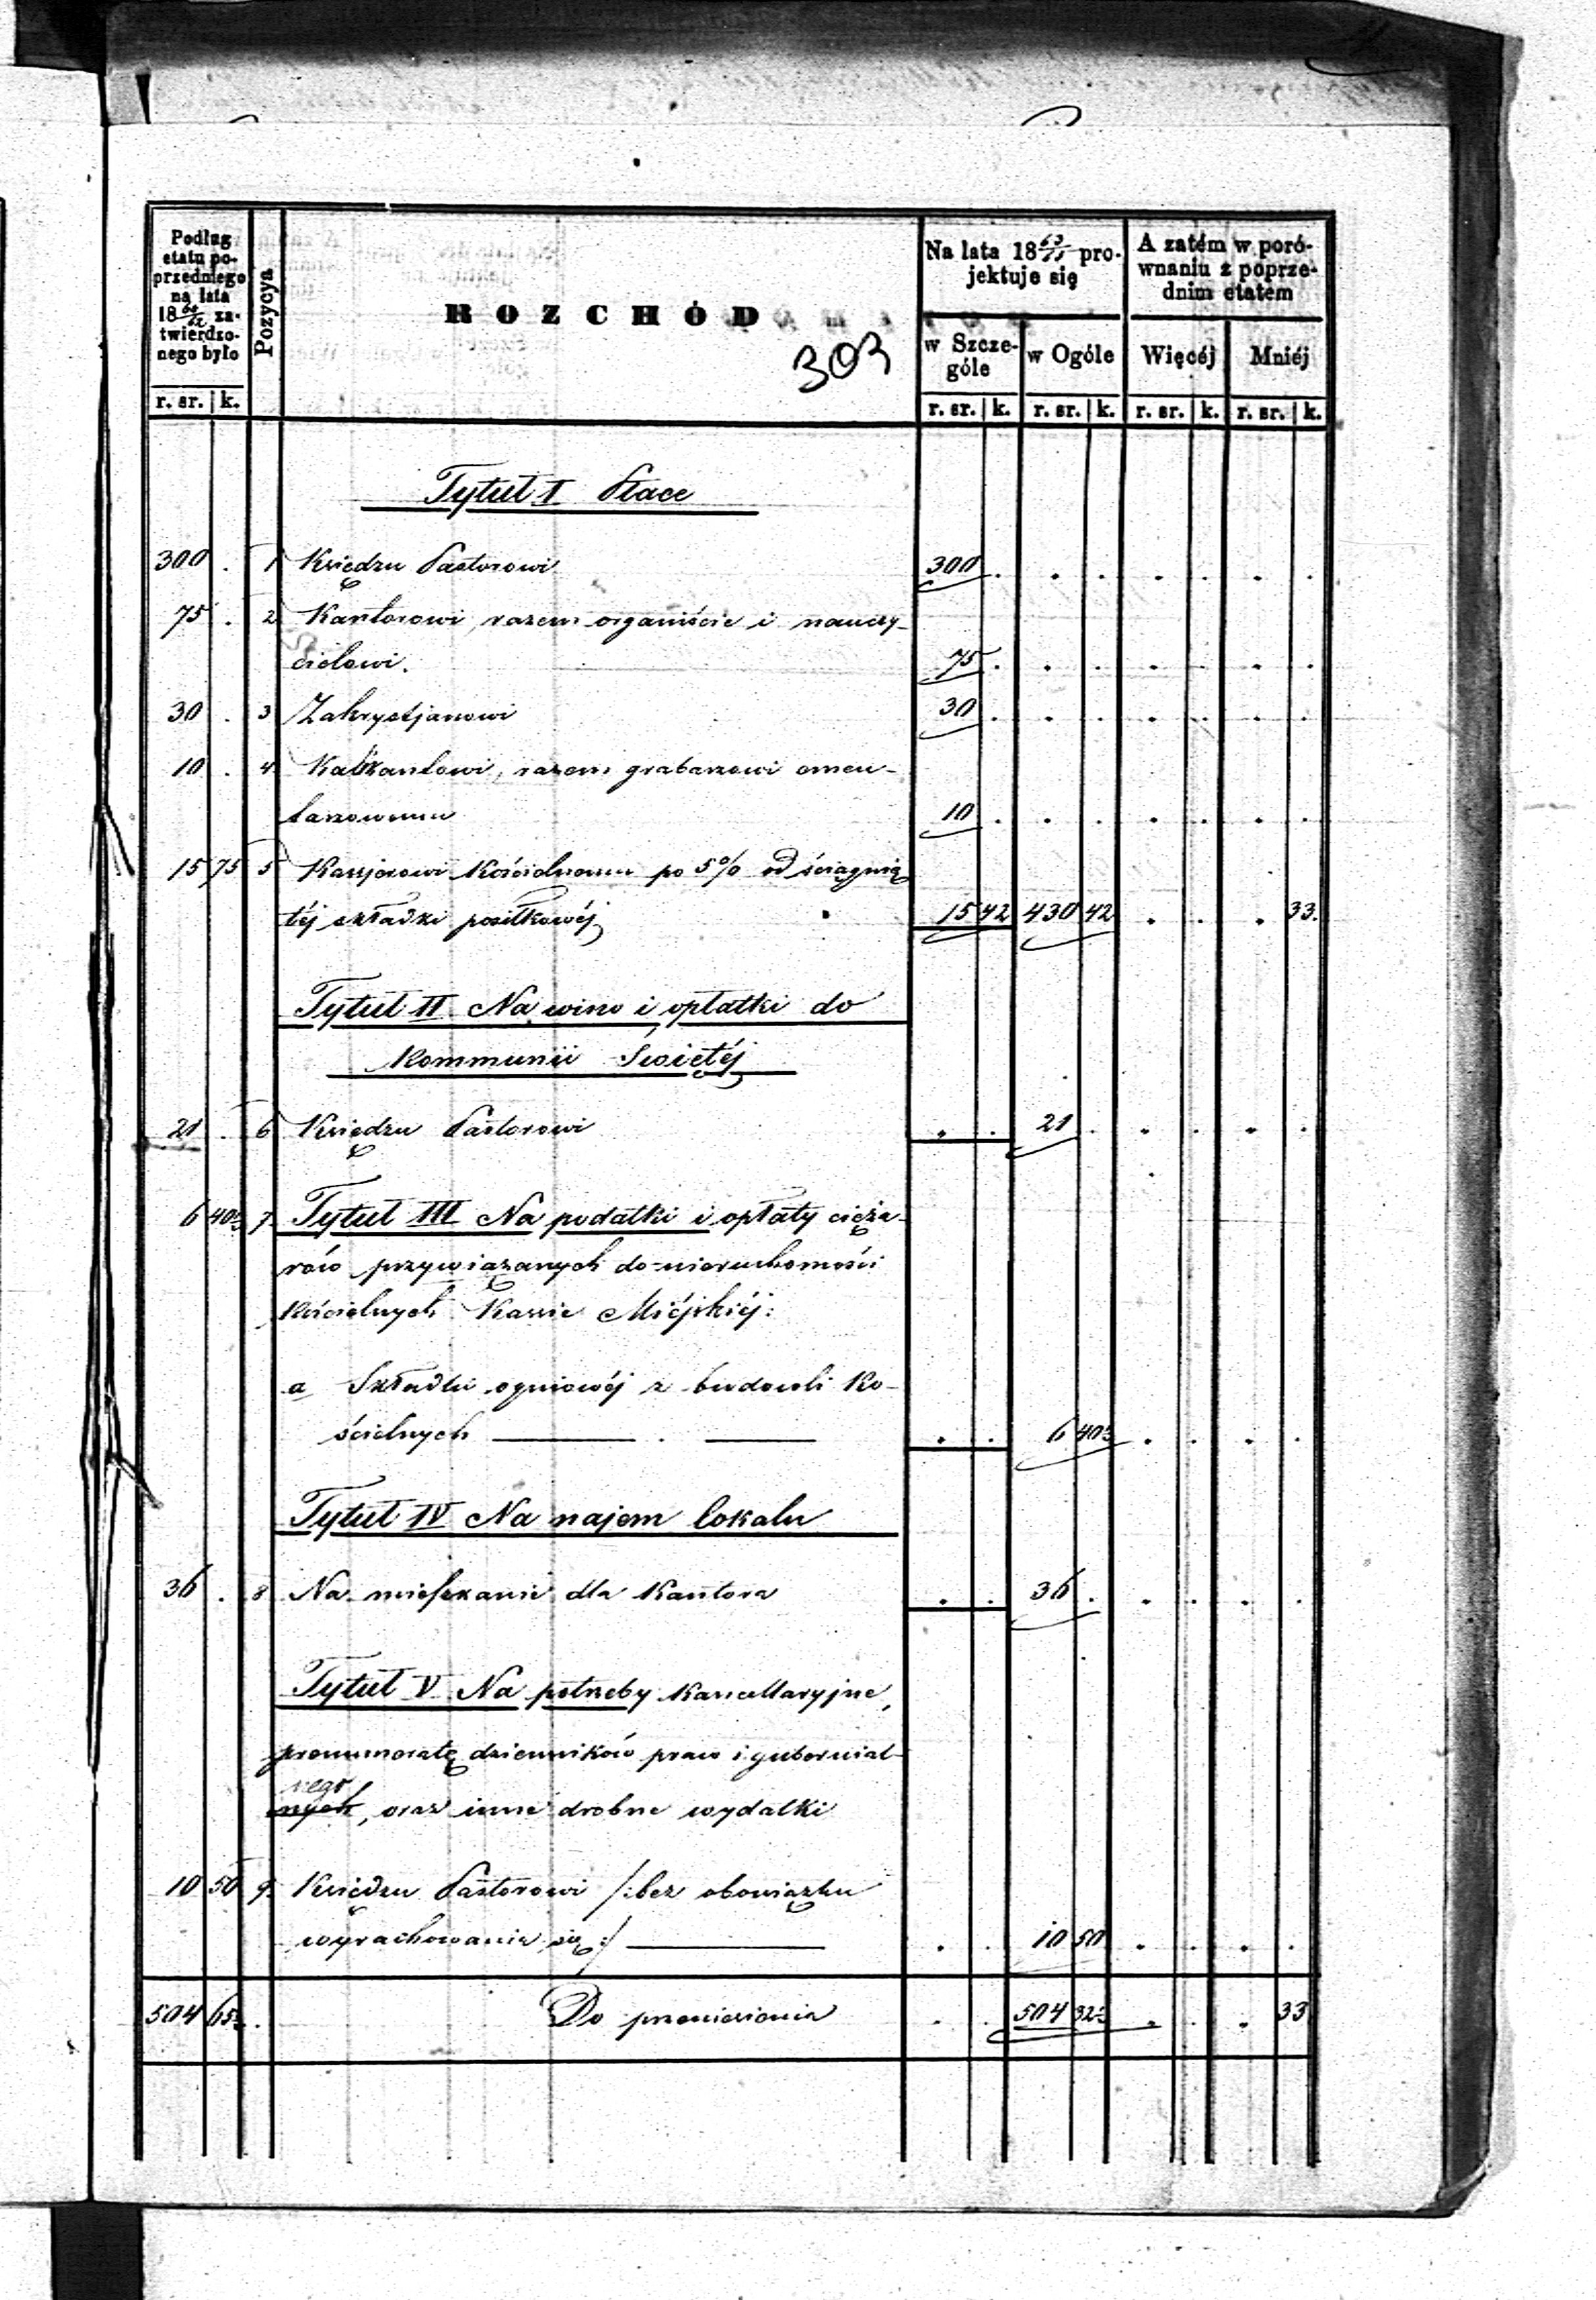 Podług etatu poprzedniego na lata 18 60/62 zatwierdzonego było
Pozycya
ROZCHÓD
303
Na lata 18 63/ projektuje się
A zatém w porównaniu z poprzednim etatem
w Szczególe
w Ogóle
Więcéj
Mniéj
r. sr. k.
r. sr. k. r. sr. k. r. sr. k. r. sr. k.
Tytuł I Płace
300 . 1 Księdzu Pastorowi 300 . . . . . . .
75 . 2 Kantorowi, razem organiście i nauczy-
cielowi. 75 . . . . . . .
30 . 3 Zakrystjanowi 30 . . . . . . .
10 . 4 Kalkantowi, razem grabarzowi cmen-
tarzowemu 10 . . . . . . .
15 75 5 Kassjerowi Kościelnemu po 5% od ściągnię
téj składki posiłkowéj 15 42 430 42 . . . 33.
Tytuł II Na wino i opłatki do
Kommunii Świętéj
21 . 6 Księdzu Pastorowi . . 21 . . . . .
6 40½ 7 Tytuł III Na podatki i opłaty cięża-
rów przywiązanych do nieruchomości
Kościelnych Kassie Miéjskiéj:
a Składki ogniowéj z budowli Ko-
ścielnych . . . 6 40½ . . . .
Tytuł IV Na najem lokalu
36 . 8 Na mieszkanie dla Kantora . . 36 . . . . .
Tytuł V Na potrzeby Kancellaryjne,
prenumeratę dzienników praw i gubernial-
nego
nych, oraz inne drobne wydatki
10 50 9. Księdzu Pastorowi /:bez obowiązku
wyrachowania się:/ . . 10 50 . . . .
504 65½ . Do przeniesienia . . 504 32½ . . . 33